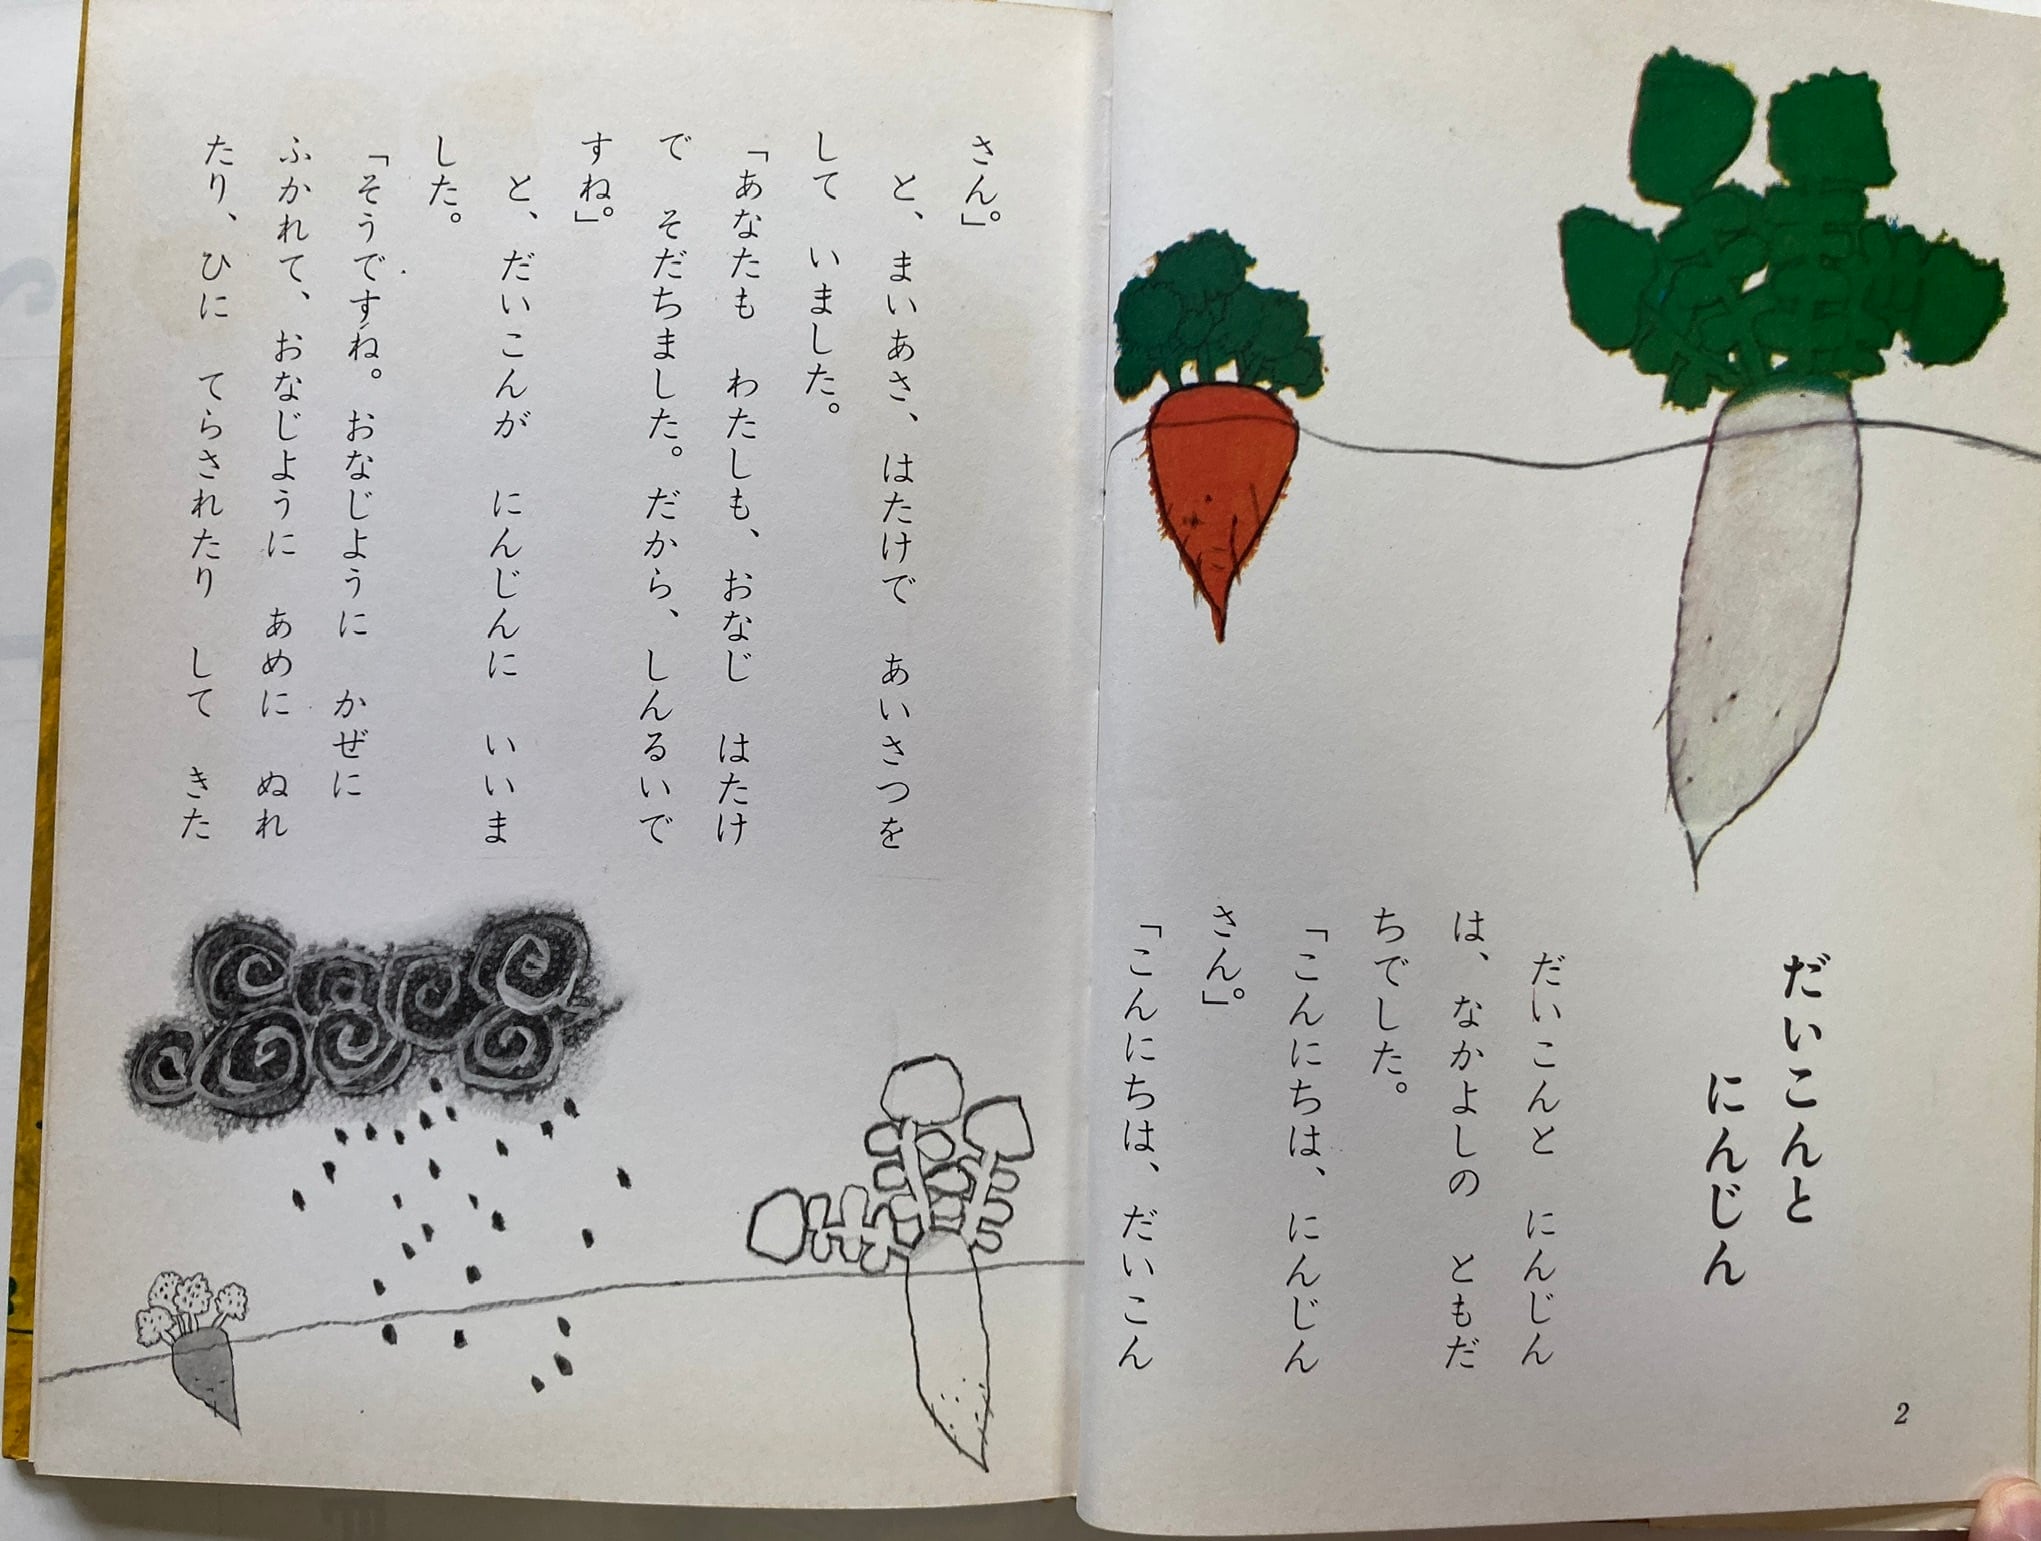 だいこんと
にんじん
だいこんと　にんじん
は、なかよしの　ともだ
ちでした。
「こんにちは、にんじん
さん。」
「こんにちは、だいこん
2
さん。」
と、まいあさ、はたけで　あいさつを
して　いました。
「あなたも　わたしも、おなじ　はたけ
で　そだちました。だから、しんるいで
すね。」
と、だいこんが　にんじんに　いいま
した。
「そうですね。おなじように　かぜに
ふかれて、おなじように　あめに　ぬれ
たり、ひに　てらされたり　して　きた